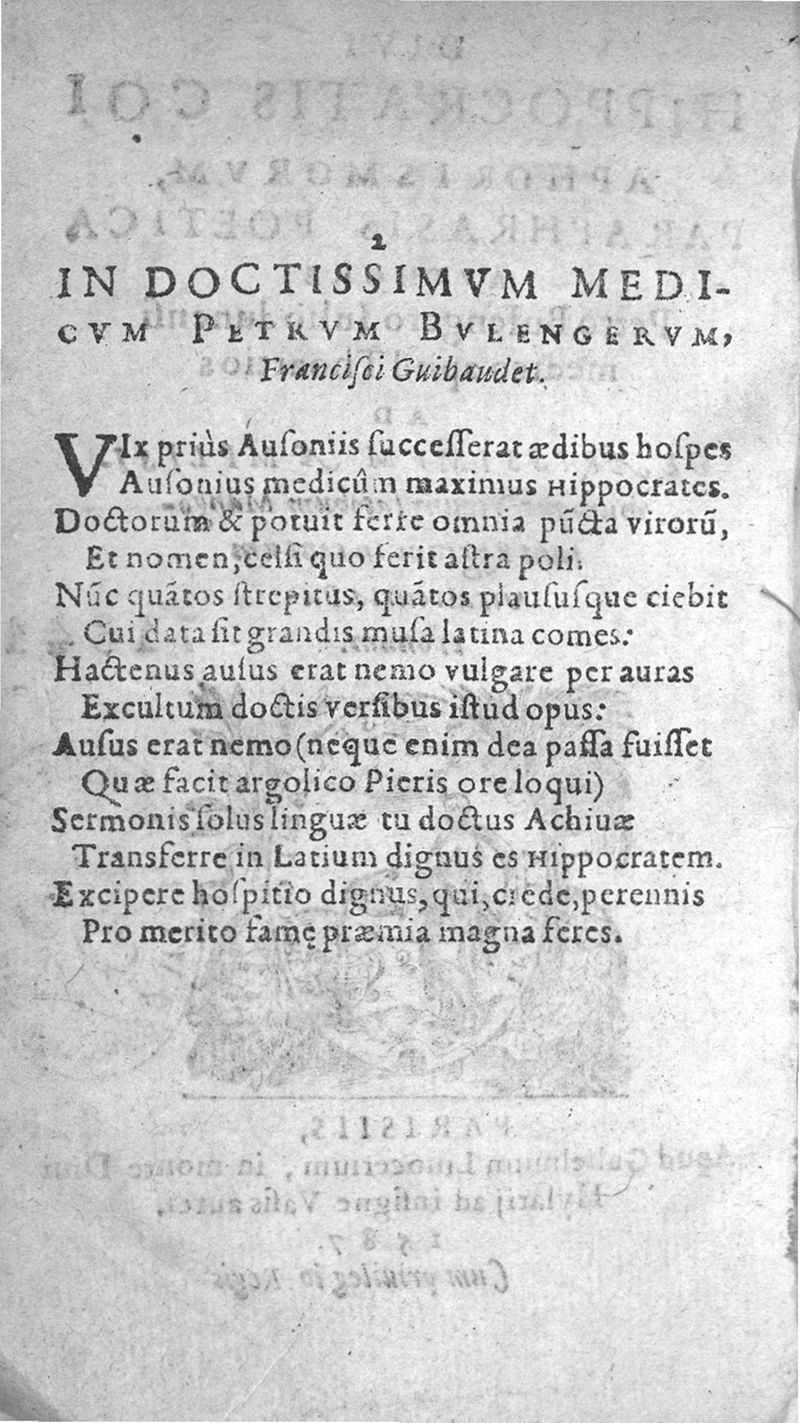 2
IN DOCTISSIMVM MEDI-
CVM PETRVM BVLENGERVM,
Franciſci Guibaudet.
VIx priùs Auſoniis ſucceſſerat ædibus hoſpes
Auſonius medicûm maximus Hippocrates.
Doctorum & potuit ferre omnia pũcta virorũ,
Et nomen, celſi quo ferit aſtra poli.
Nũc quãtos ſtrepitus, quãtos plauſuſque ciebit
Cui data ſit grandis muſa latina comes:
Hactenus auſus erat nemo vulgare per auras
Excultum doctis verſibus iſtud opus:
Auſus erat nemo (neque enim dea paſſa fuiſſet
Quæ facit argolico Pieris ore loqui)
Sermonis ſolus linguæ tu doctus Achiuæ
Transferre in Latium dignus es Hippocratem.
Excipere hoſpitio dignus, qui, crede, perennis
Pro merito famę præmia magna feres.